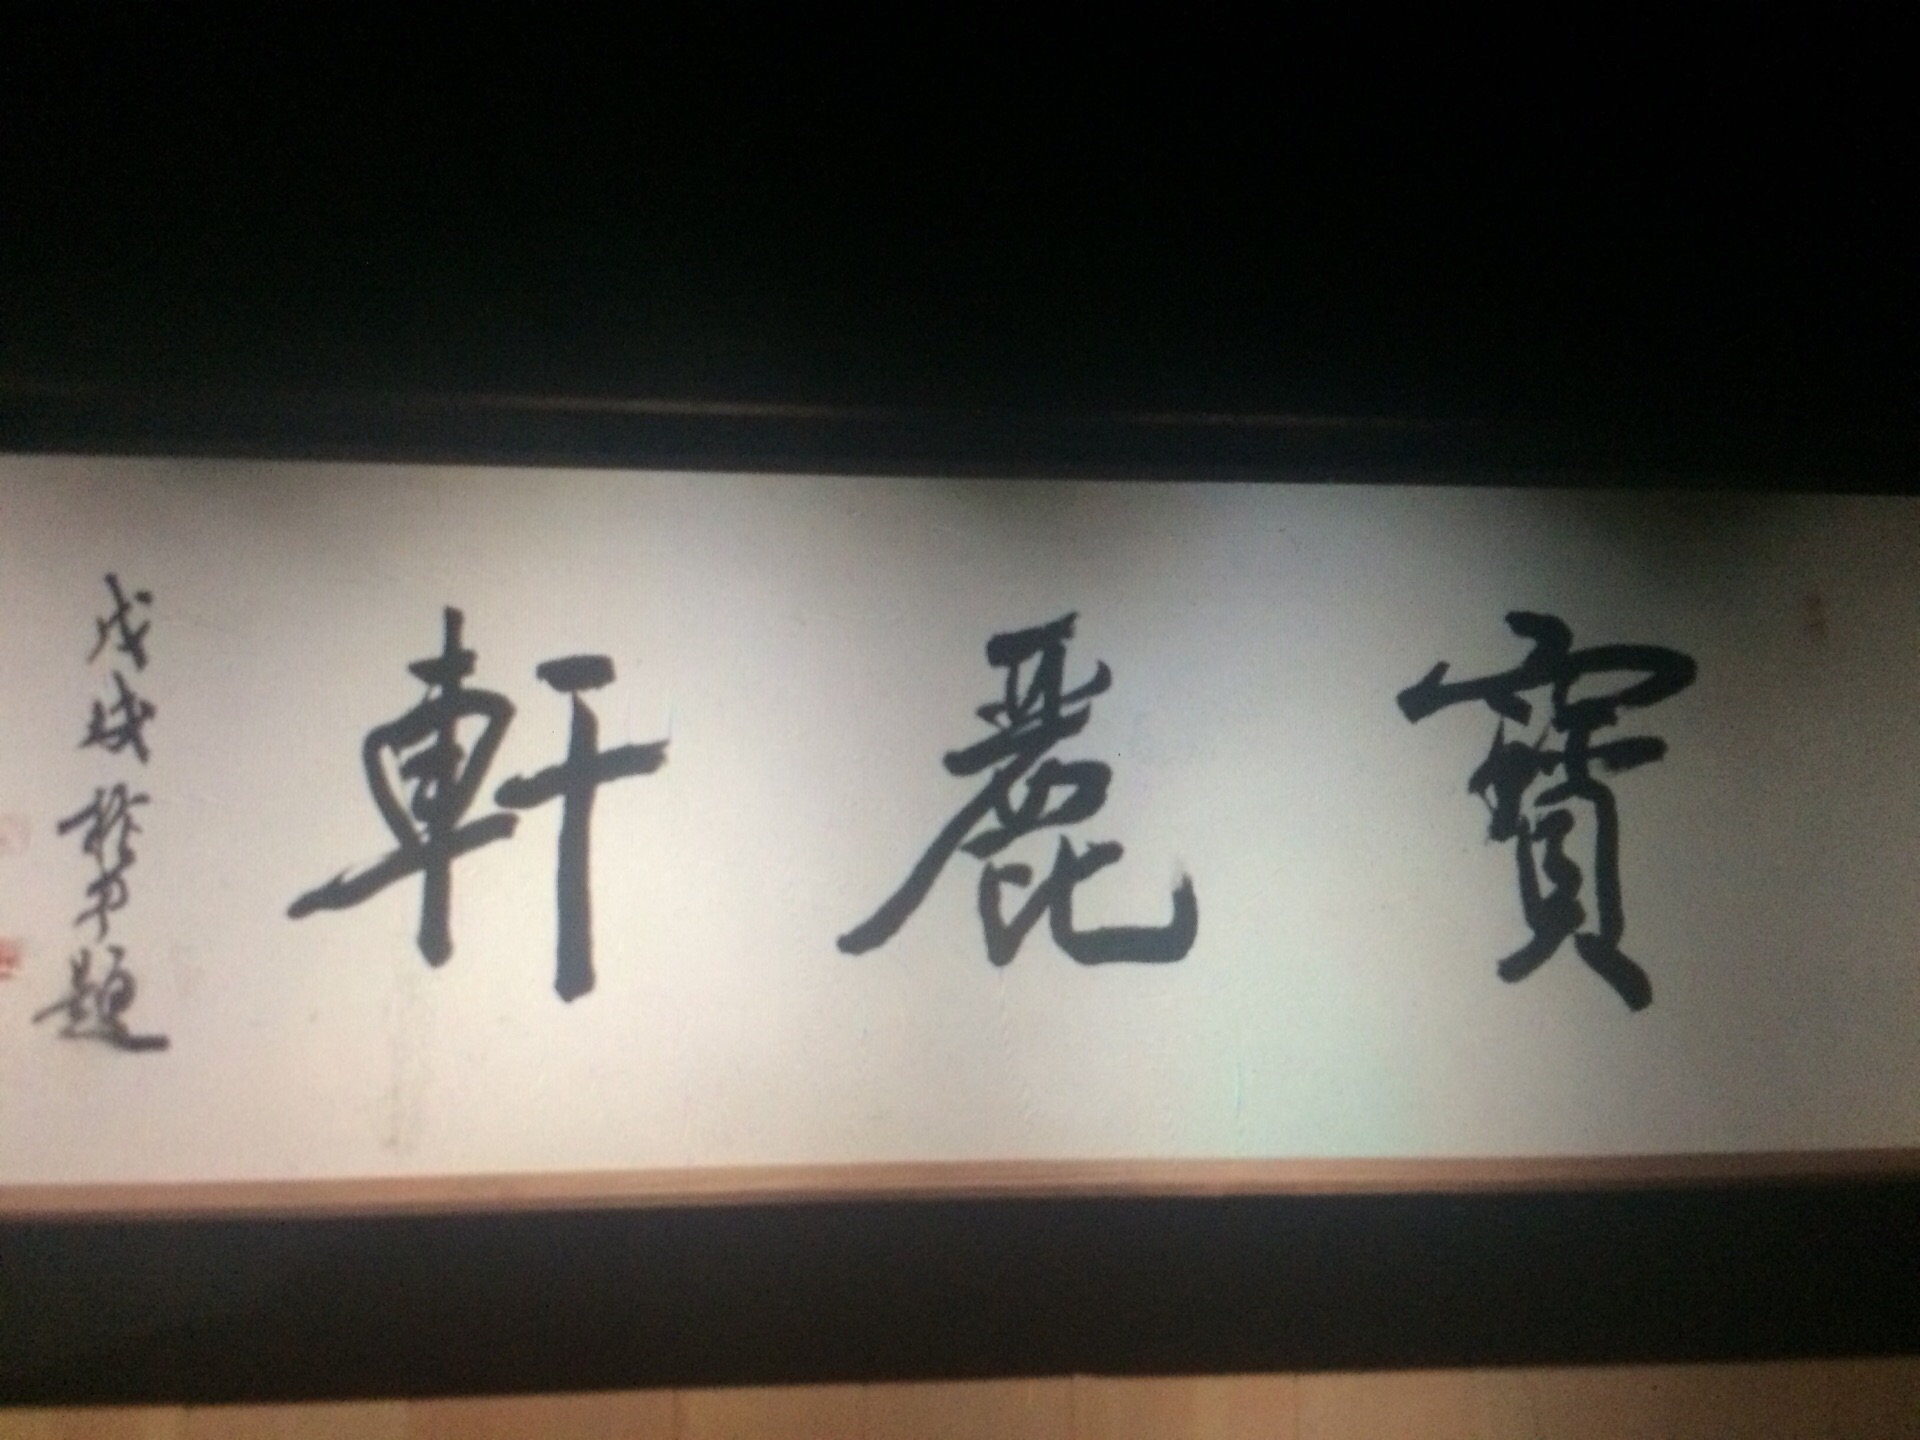 寶麗軒
戊戌 題